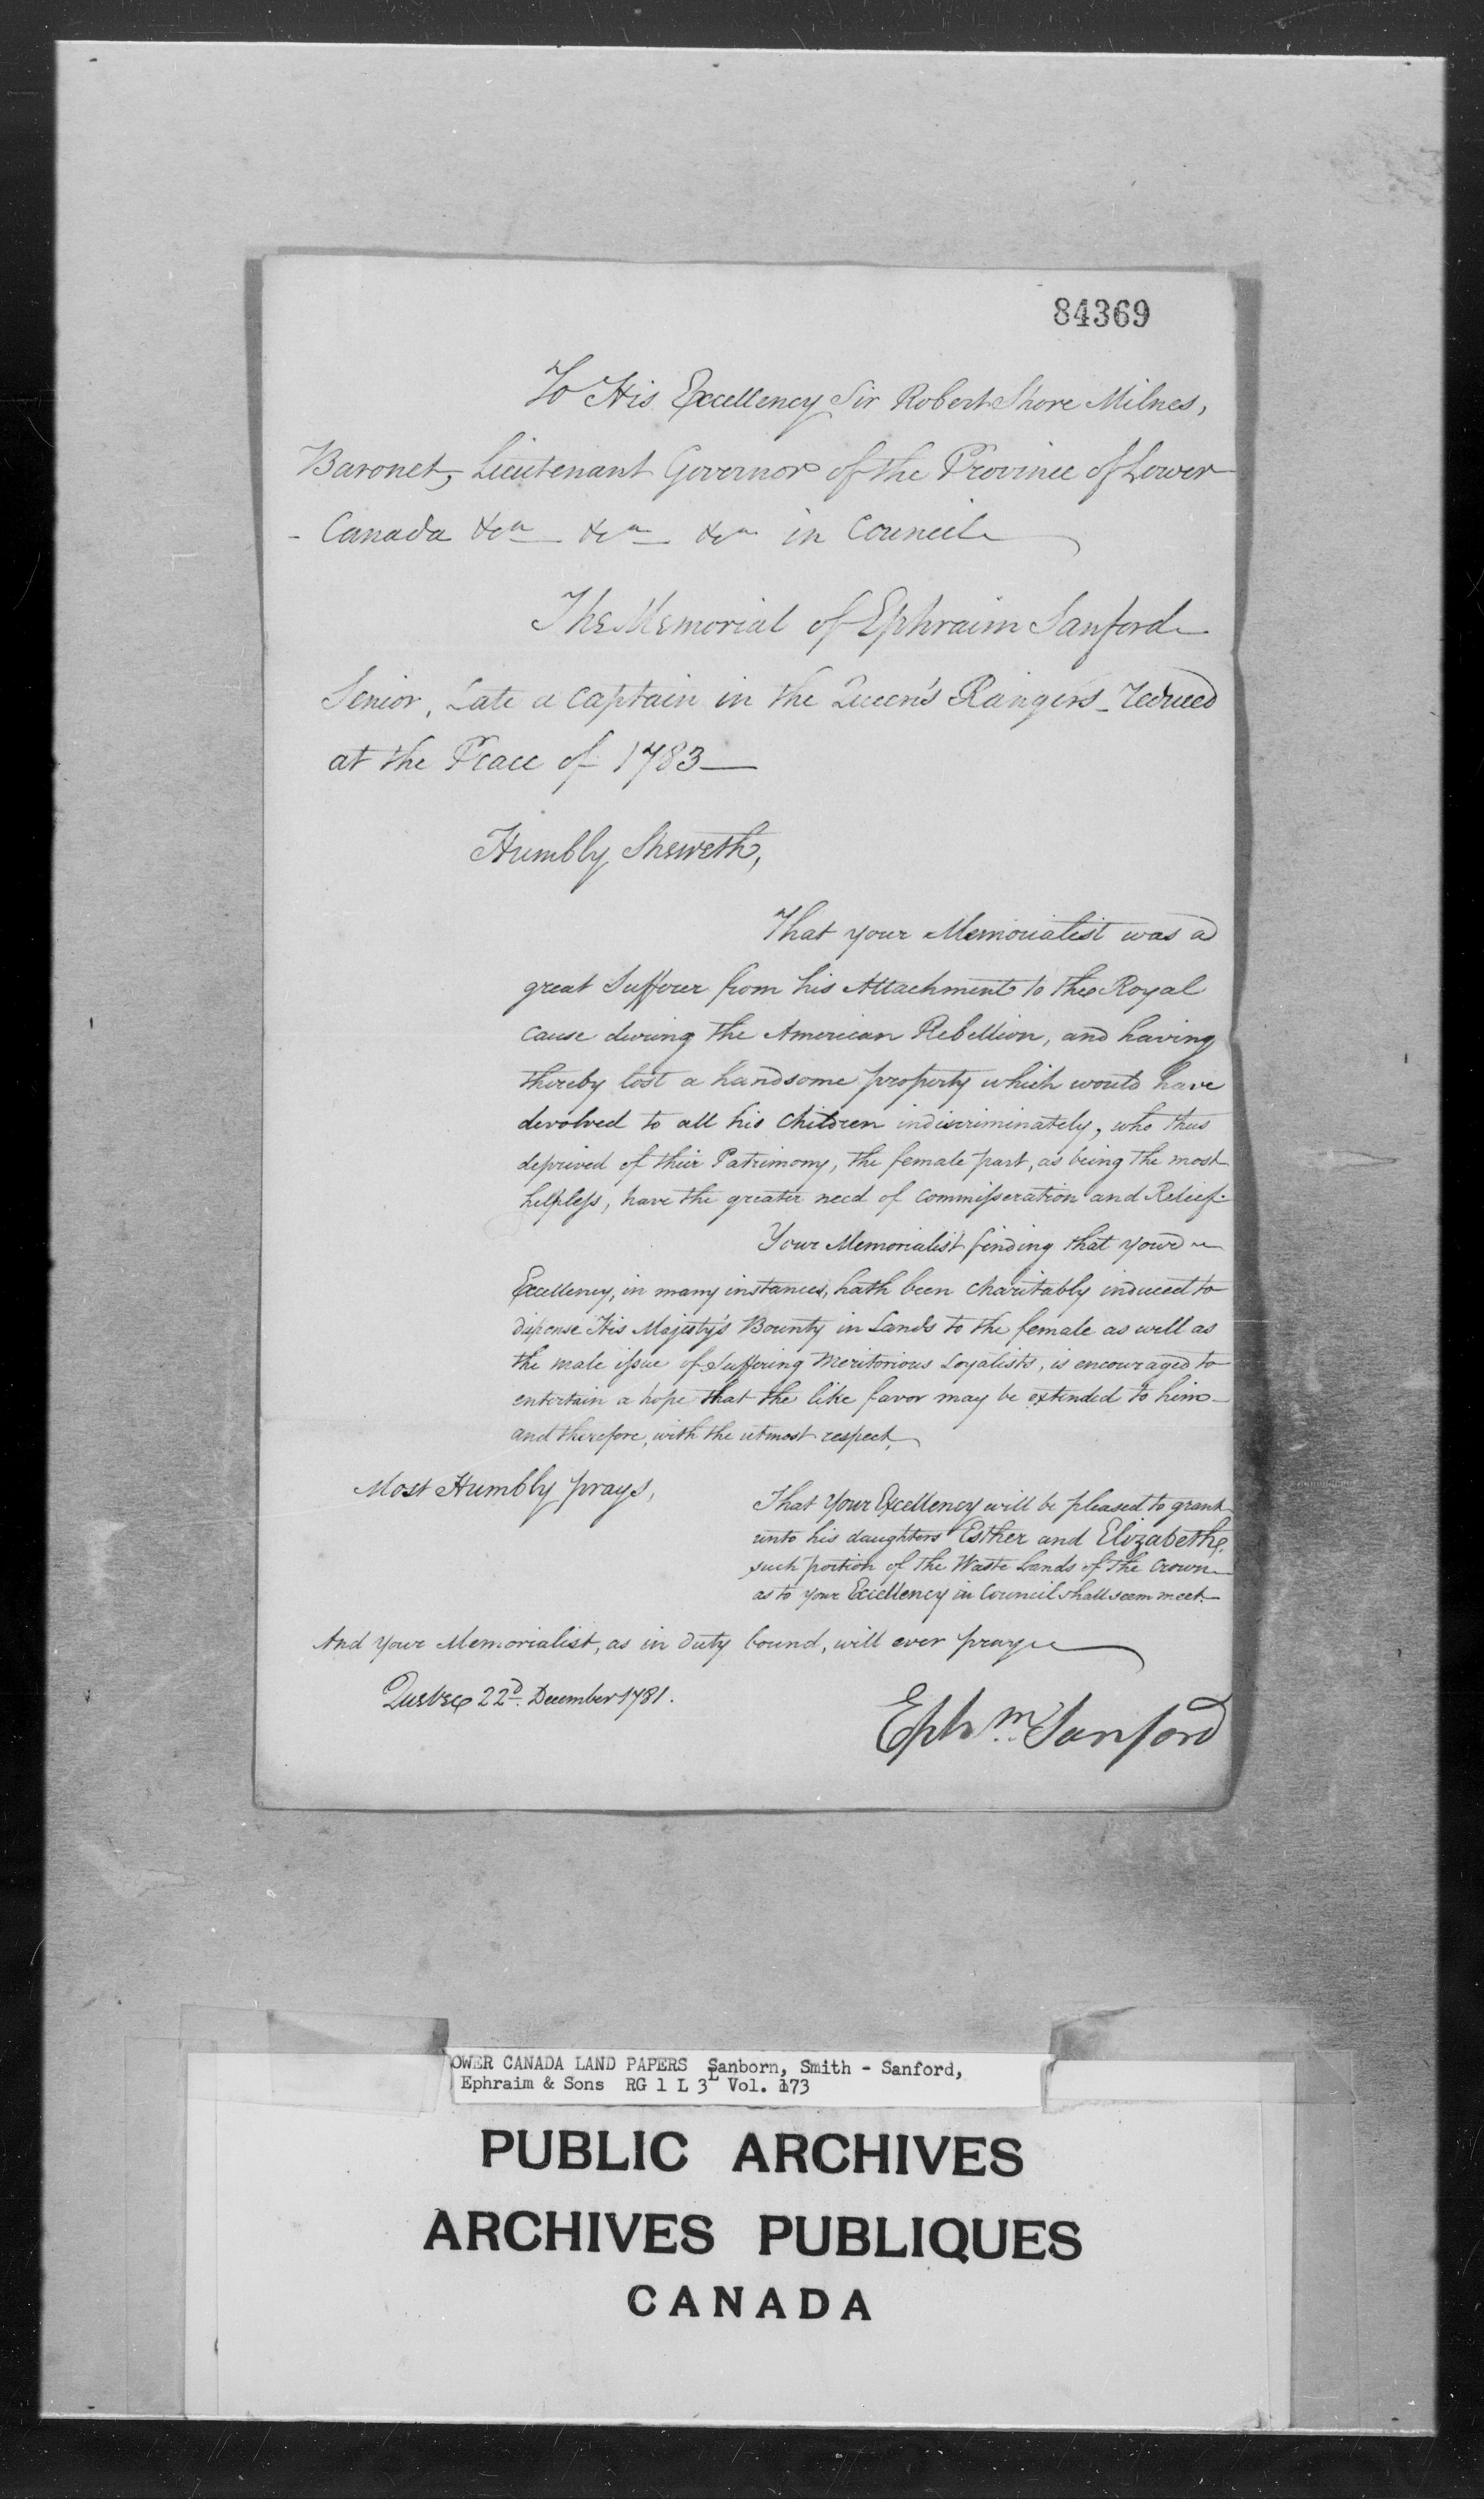 84369
To His Excellency Sir Robert Shore Milnes,
Baronet, Lieutenant Governor of the Province of Lower
- Canada &ca &ca &ca in Council
The Memorial of Ephraim Sanford
Senior, Late a Captain in the Queen's Rangers reduced
at the Peace of 1783
Humbly Sheweth,
That your Memorialist was a
great Sufferer from his Attachment to the Royal
cause during the American Rebellion, and having
thereby lost a handsome property which would have
devolved to all his Children indiscriminately, who thus
deprived of their Patrimony, the female part, as being the most
helpless, have the greater need of commisseration and Relief.
Your Memorialist finding that your
Excellency, in many instances, hath been charitably induced to
dispense His Majesty's Bounty in Lands to the female as well as
the male issue of Suffering Meritorious Loyalists, is encouraged to
entertain a hope that the like favor may be extended to him
and therefore, with the utmost respect,
Most Humbly prays,
That Your Excellency will be pleased to grant
unto his daughters Esther and Elizabeth,
such portion of the Waste Lands of the Crown
as to your Excellency in Council shall seem meet.
And your Memorialist, as in duty bound, will ever pray
Quebec 22d. December 1781.
Ephm. Sanford
OWER CANADA LAND PAPERS Sanborn, Smith - Sanford,
Ephraim & Sons RG 1 L 3L Vol. 173
PUBLIC ARCHIVES
ARCHIVES PUBLIQUES
CANADA